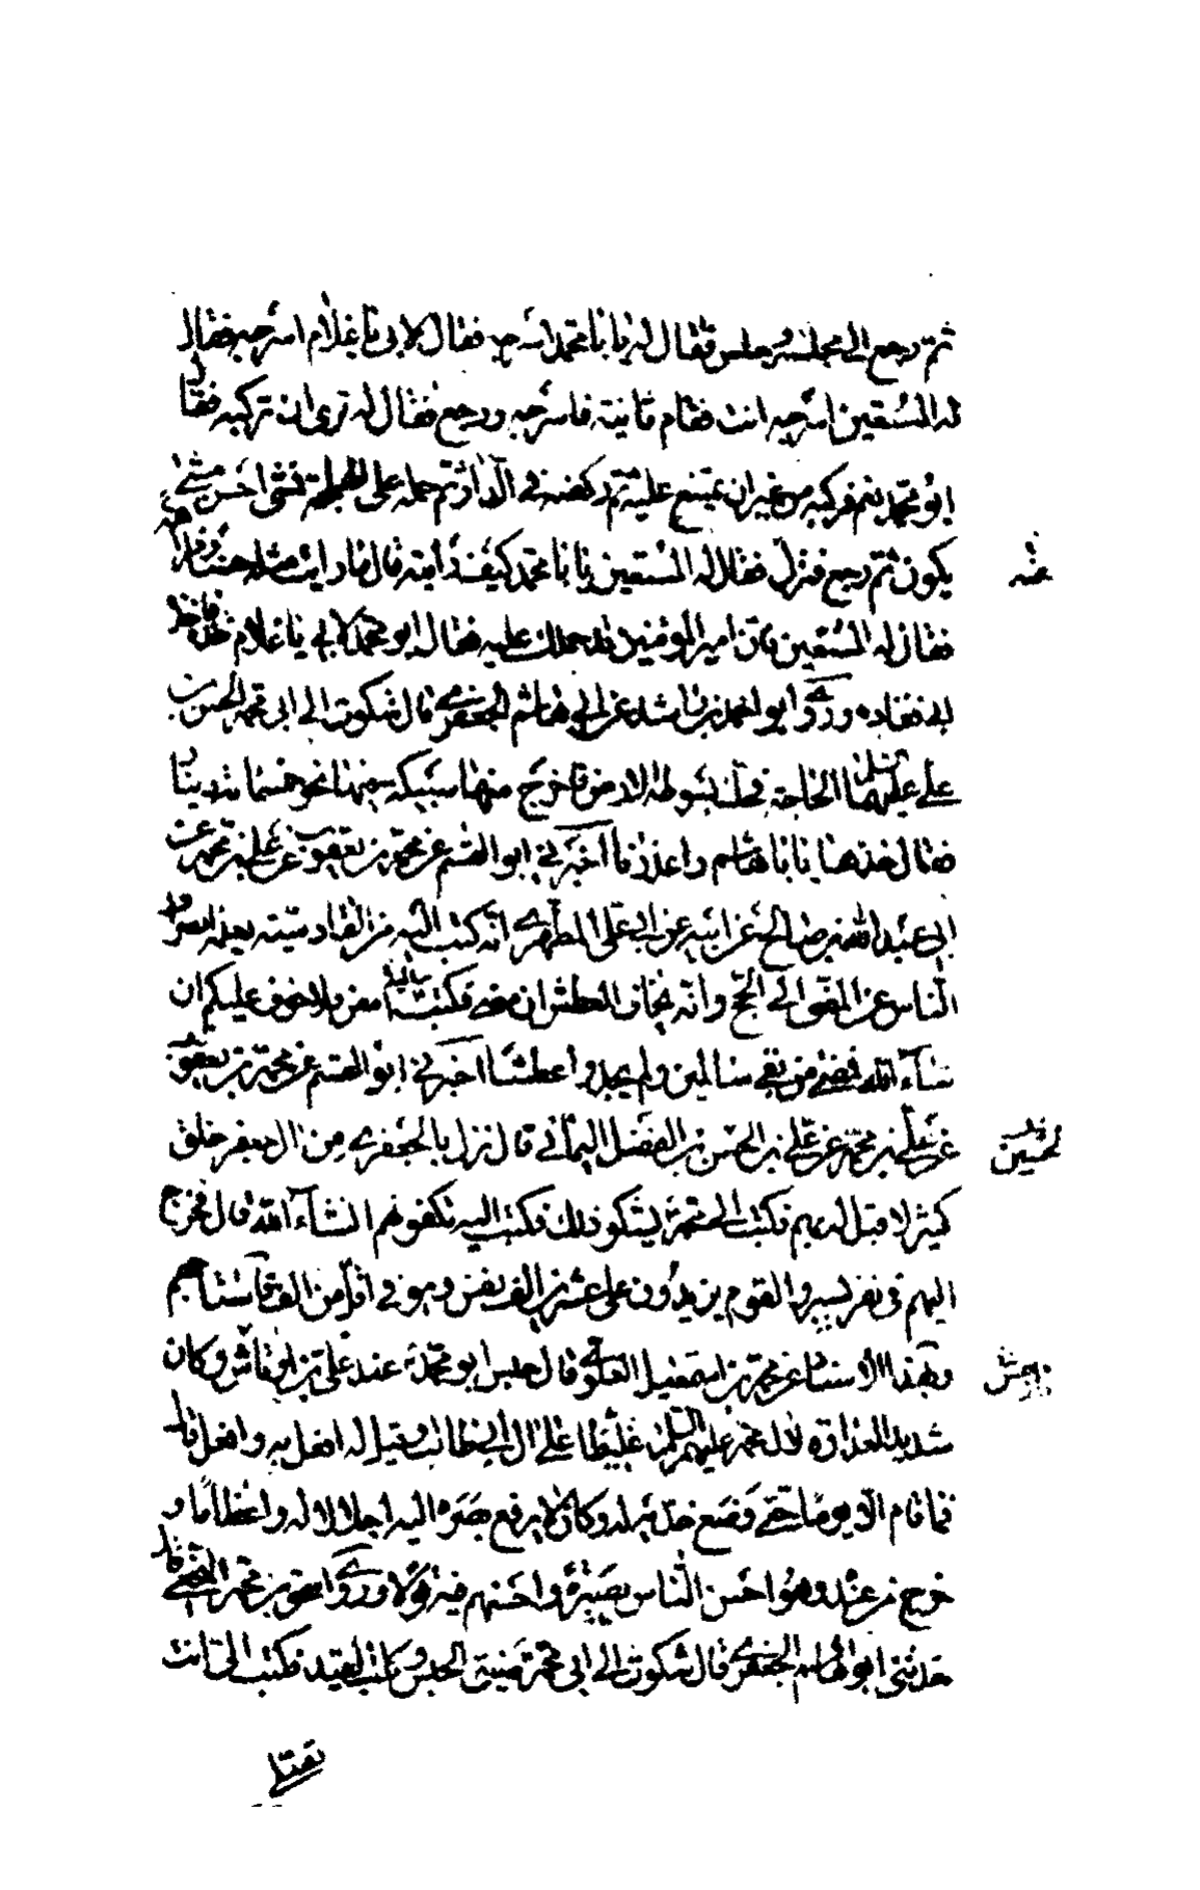 ثم رجع الى مجلسه وجلس فقال له يا با محمد اسرجه فقال لابى يا غلام اسرجه فقال
له المستعين اسرجه انت فقام ثانية فاسرجه ورجع فقال له ترى ان تركبه فقال
ابو محمد نعم فركبه من غير ان يمتنع عليه ثم ركضه فى الدار ثم حمله على الهملجة فمشى احسن مشى
يكون ثم رجع فنزل فقال له المستعين يا با محمد كيف رأيته قال ما رايت مثله حسنا
عنه
فقال له المستعين فان امير المؤمنين قد حملك عليه فقال ابو محمد لابى يا غلام خذه فاخذ
ابى فقاده وروى ابو احمد بن راشد عن ابى هاشم الجعفرى قال شكوت الى ابى محمد الحسن بن
على عليهما السلم الحاجة فحك بسوطه الارض فاخرج منها سبيكة نحو خمسمائة دينار
فقال خذها يا با هاشم واعذرنا اخبرنى ابو القسم عن محمد بن يعقوب عن على بن محمد عن
ابى عبد الله بن صالح عن ابيه عن ابى على المطهرى انه كتب اليه من القادسية يعلمه انصراف
الناس عن المضى الى الحج وانه يخاف العطش ان مضى فكتب امضوا فلا خوف عليكم ان
شاء الله فمضى من بقى سالمين ولم يجدوا عطشا اخبرنى ابو القسم عن محمد بن يعقوب
عن على بن محمد عن على بن الحسن بن الفضل اليمانى قال نزل بالجعفرى من ال جعفر خلق
كثير لا قبل له بهم فكتب الى ابى محمد يشكو ذلك فكتب اليه تكفونهم انشاء الله قال فخرج
اليهم فى نفر يسير والقوم يزيدون على عشرين الف نفس وهو فى اقل من الف فاستباحهم
وبهذا الاسناد عن محمد بن اسمعيل العلوى قال حبس ابو محمد عند على بن اوتاش وكان
شديد العداوة لال محمد عليهم السلم غليظا على ال ابى طالب وقيل له افعل به وافعل قال
فما قام الا يوما حتى وضع خديه له وكان لا يرفع بصره اليه اجلالا له واعظاما و
خرج من عنده وهو احسن الناس بصيرة واحسنهم فيه قولا وروى اسحق بن محمد النخعى قال
حدثنى ابو هاشم الجعفرى قال شكوت الى ابى محمد ضيق الحبس وكلب القيد فكتب الى انت